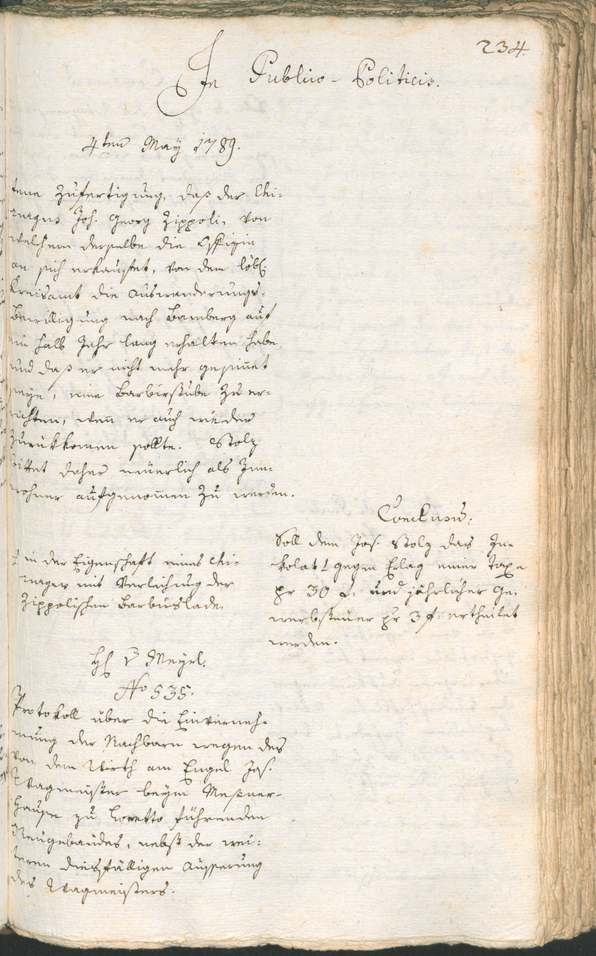 234.
In Publico-Politicis.
4ten May 1789.
tene Zufertigung, daß der Chi-
rurgus Joh. Georg Zippoli, von
welchem derselbe die Offizin
an sich erkauffet, von dem löbl.
Kreisamt die Auswanderungs-
Bewilligung nach Bamberg auf
ein halb Jahr lang erhalten habe,
und daß er nicht mehr gesinnet
seye, eine Barbierstube zu er-
richten, wenn er auch wieder
zurükkomen sollte. Stolz
bittet daher neuerlich als Inn-
wohner aufgenomen zu werden.
Conclusum.
Soll dem Jos. Stolz das In-
kolat † gegen Erlag einer Taxe
pr 30 f. und jährlicher Ge-
werbsteuer pr 3 f. ertheilet
werden.
† in der Eigenschaft eines Chi-
rurgen mit Verleihung der
Zippolischen Barbierslade.
H. v Meyrl.
No 535.
Protokoll über die Einverneh-
mung der Nachbarn wegen des
von dem Wirth am Engel Jos.
Wagmeister beym Meßner-
hause zu Loretto führenden
Neugebaudes, nebst der wei-
teren diesfälligen Äusserung
des Wagmeisters.